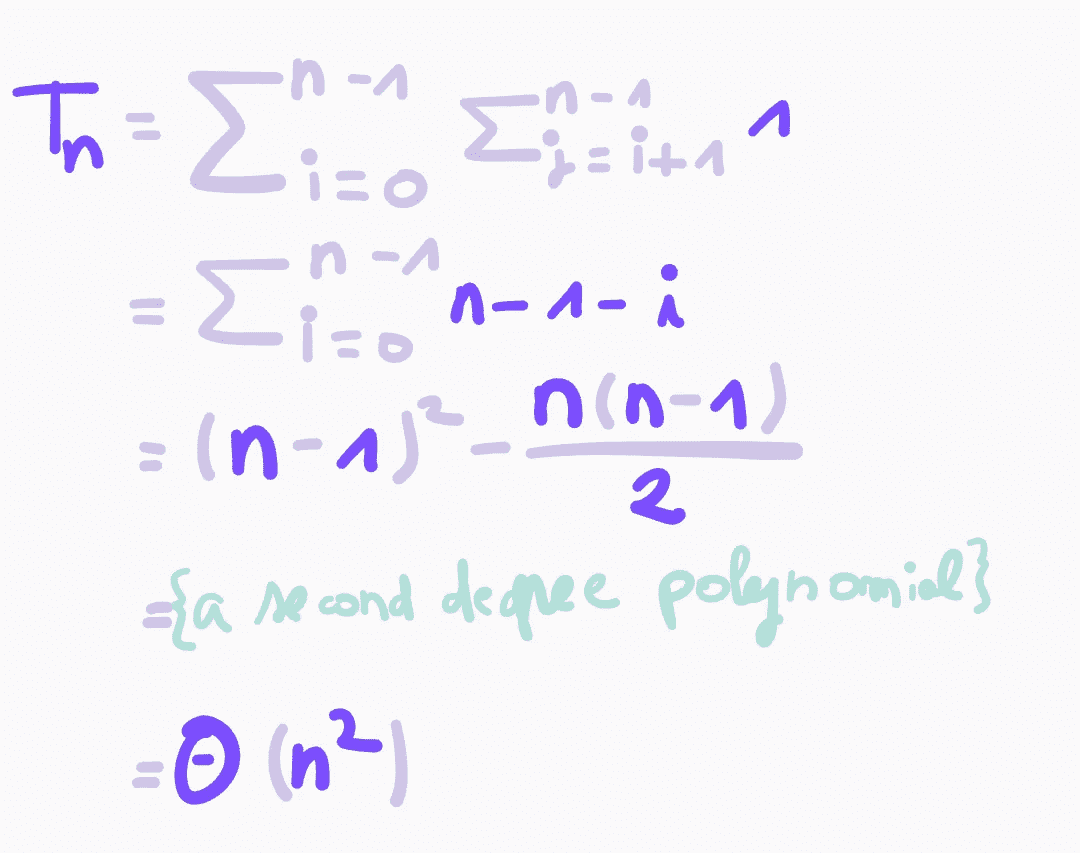 Tn = ∑ n-1 i=0 ∑ n-1 j=i+1 1
= ∑ n-1 i=0 n-1-i
= (n-1)² - n(n-1)/2
={a second degree polynomial}
=Θ(n²)